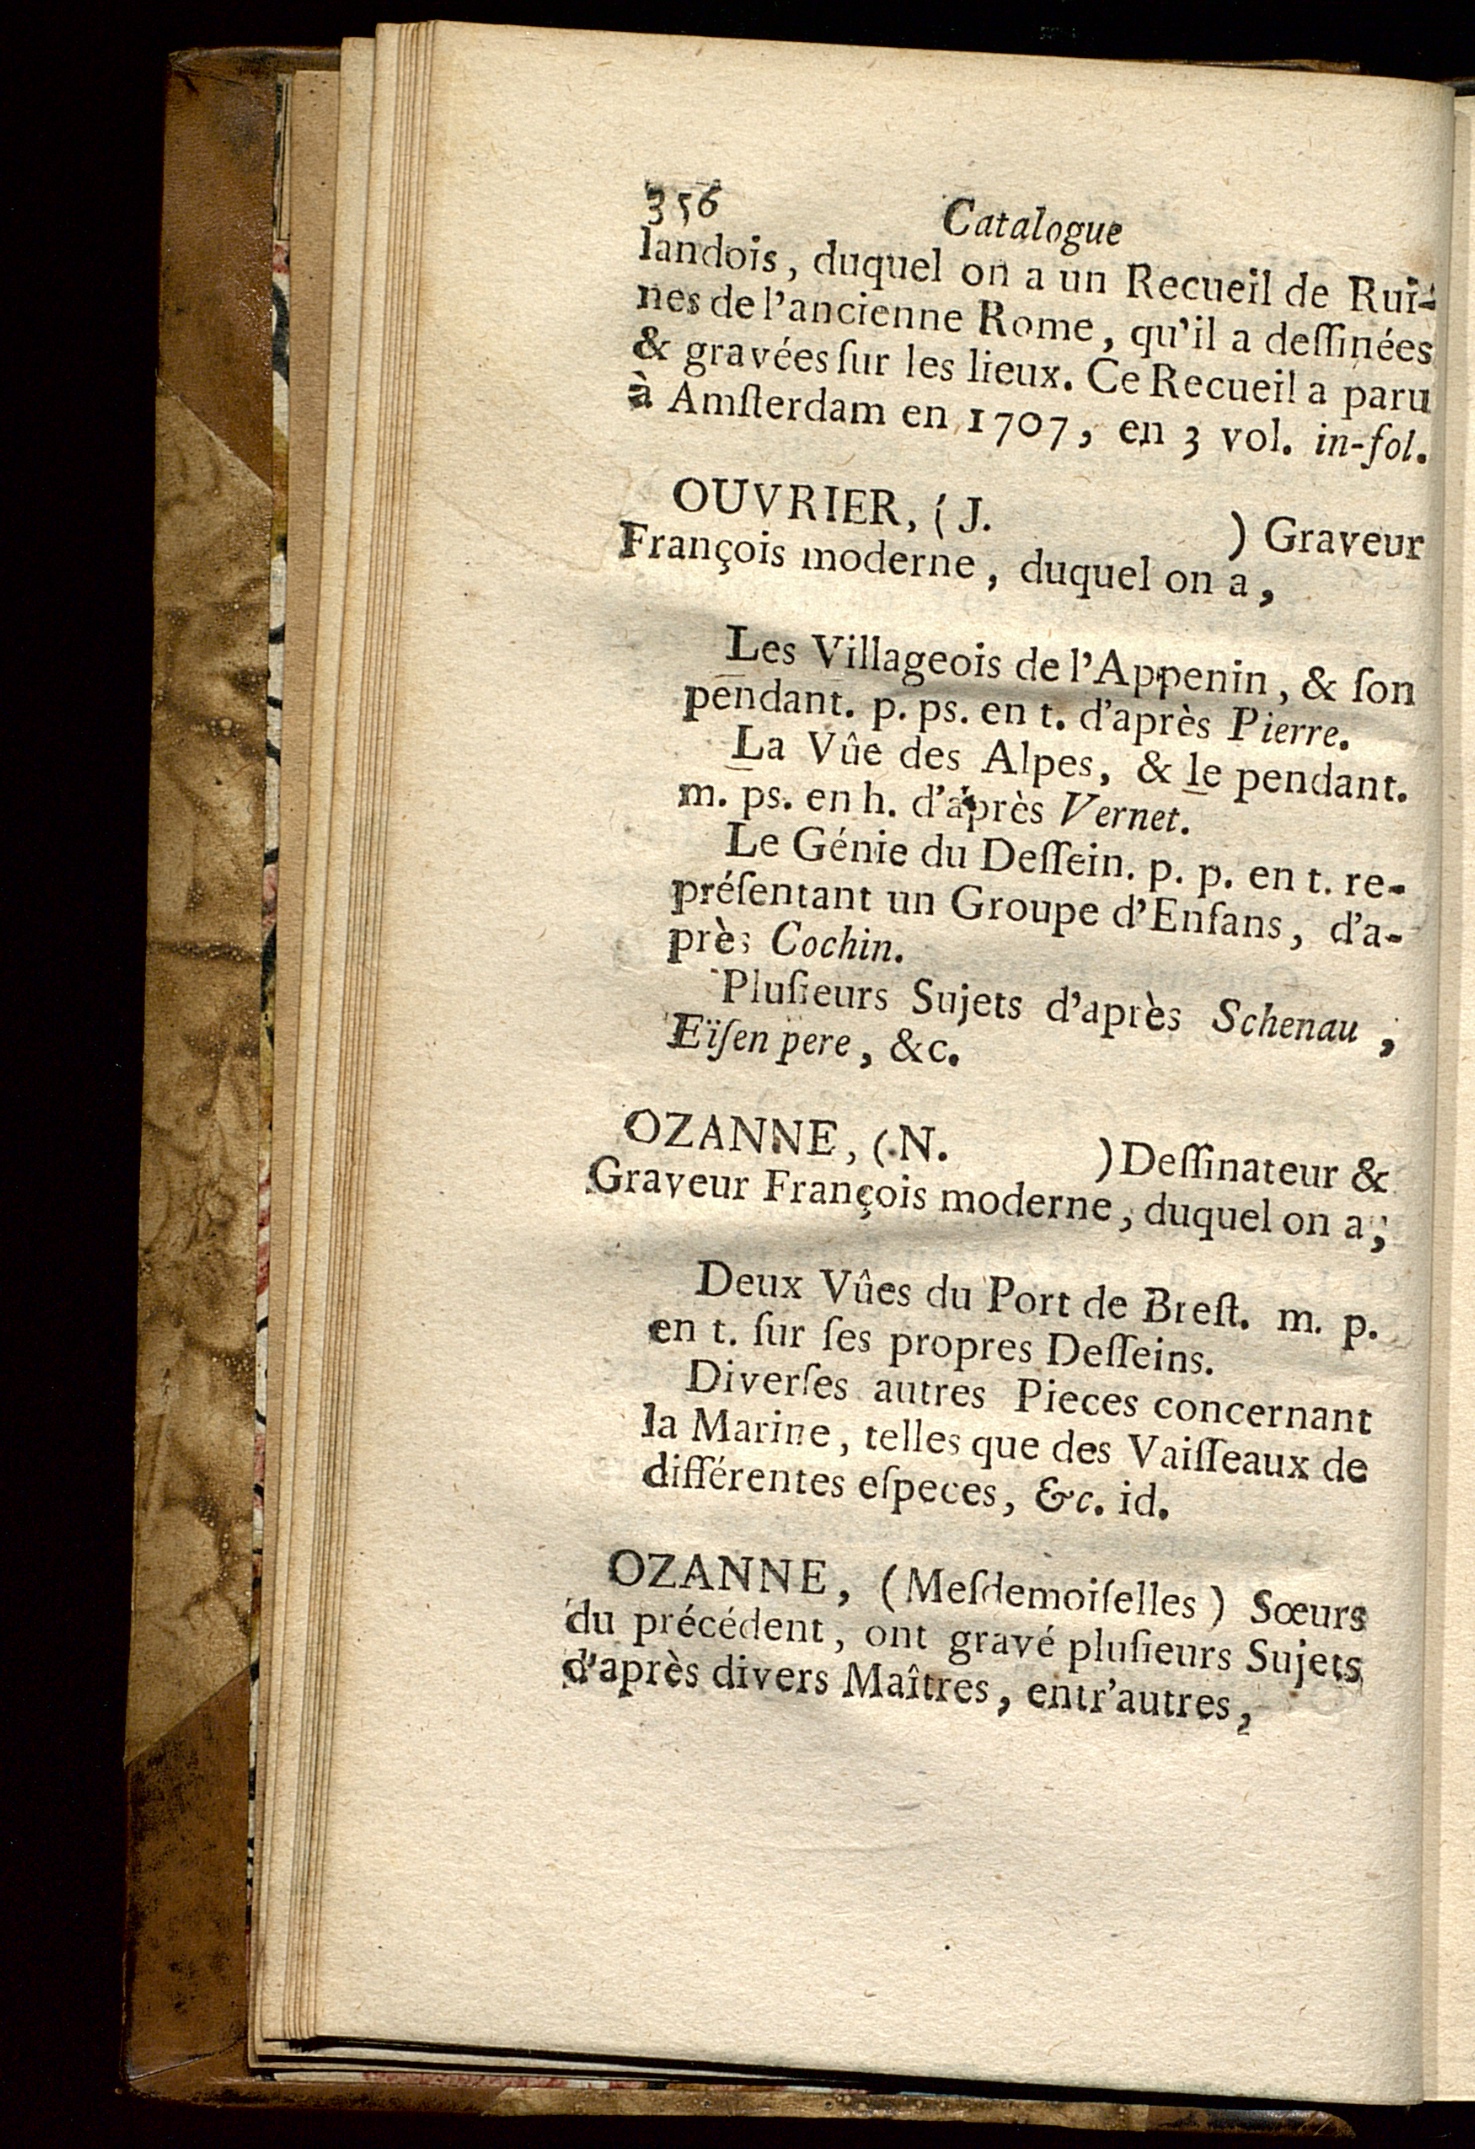 356 Catalogue
landois, duquel on a un Recueil de Rui-
nes de l'ancienne Rome, qu'il a deſſinées
& gravées ſur les lieux. Ce Recueil a paru
à Amſterdam en 1707, en 3 vol. in-fol.
OUVRIER, (J. ) Graveur
François moderne, duquel on a,
Les Villageois de l'Appenin, & ſon
pendant. p. ps. en t. d'après Pierre.
La Vûe des Alpes, & le pendant.
m. ps. en h. d'après Vernet.
Le Génie du Deſſein. p. p. en t. re-
préſentant un Groupe d'Enfans, d'a-
près Cochin.
Pluſieurs Sujets d'après Schenau,
Eïſen pere, &c.
OZANNE, (N. ) Deſſinateur &
Graveur François moderne, duquel on a,
Deux Vûes du Port de Breſt. m. p.
en t. ſur ſes propres Deſſeins.
Diverſes autres Pieces concernant
la Marine, telles que des Vaiſſeaux de
différentes eſpeces, &c. id.
OZANNE, (Meſdemoiſelles) Sœurs
du précédent, ont gravé pluſieurs Sujets
d'après divers Maîtres, entr'autres,